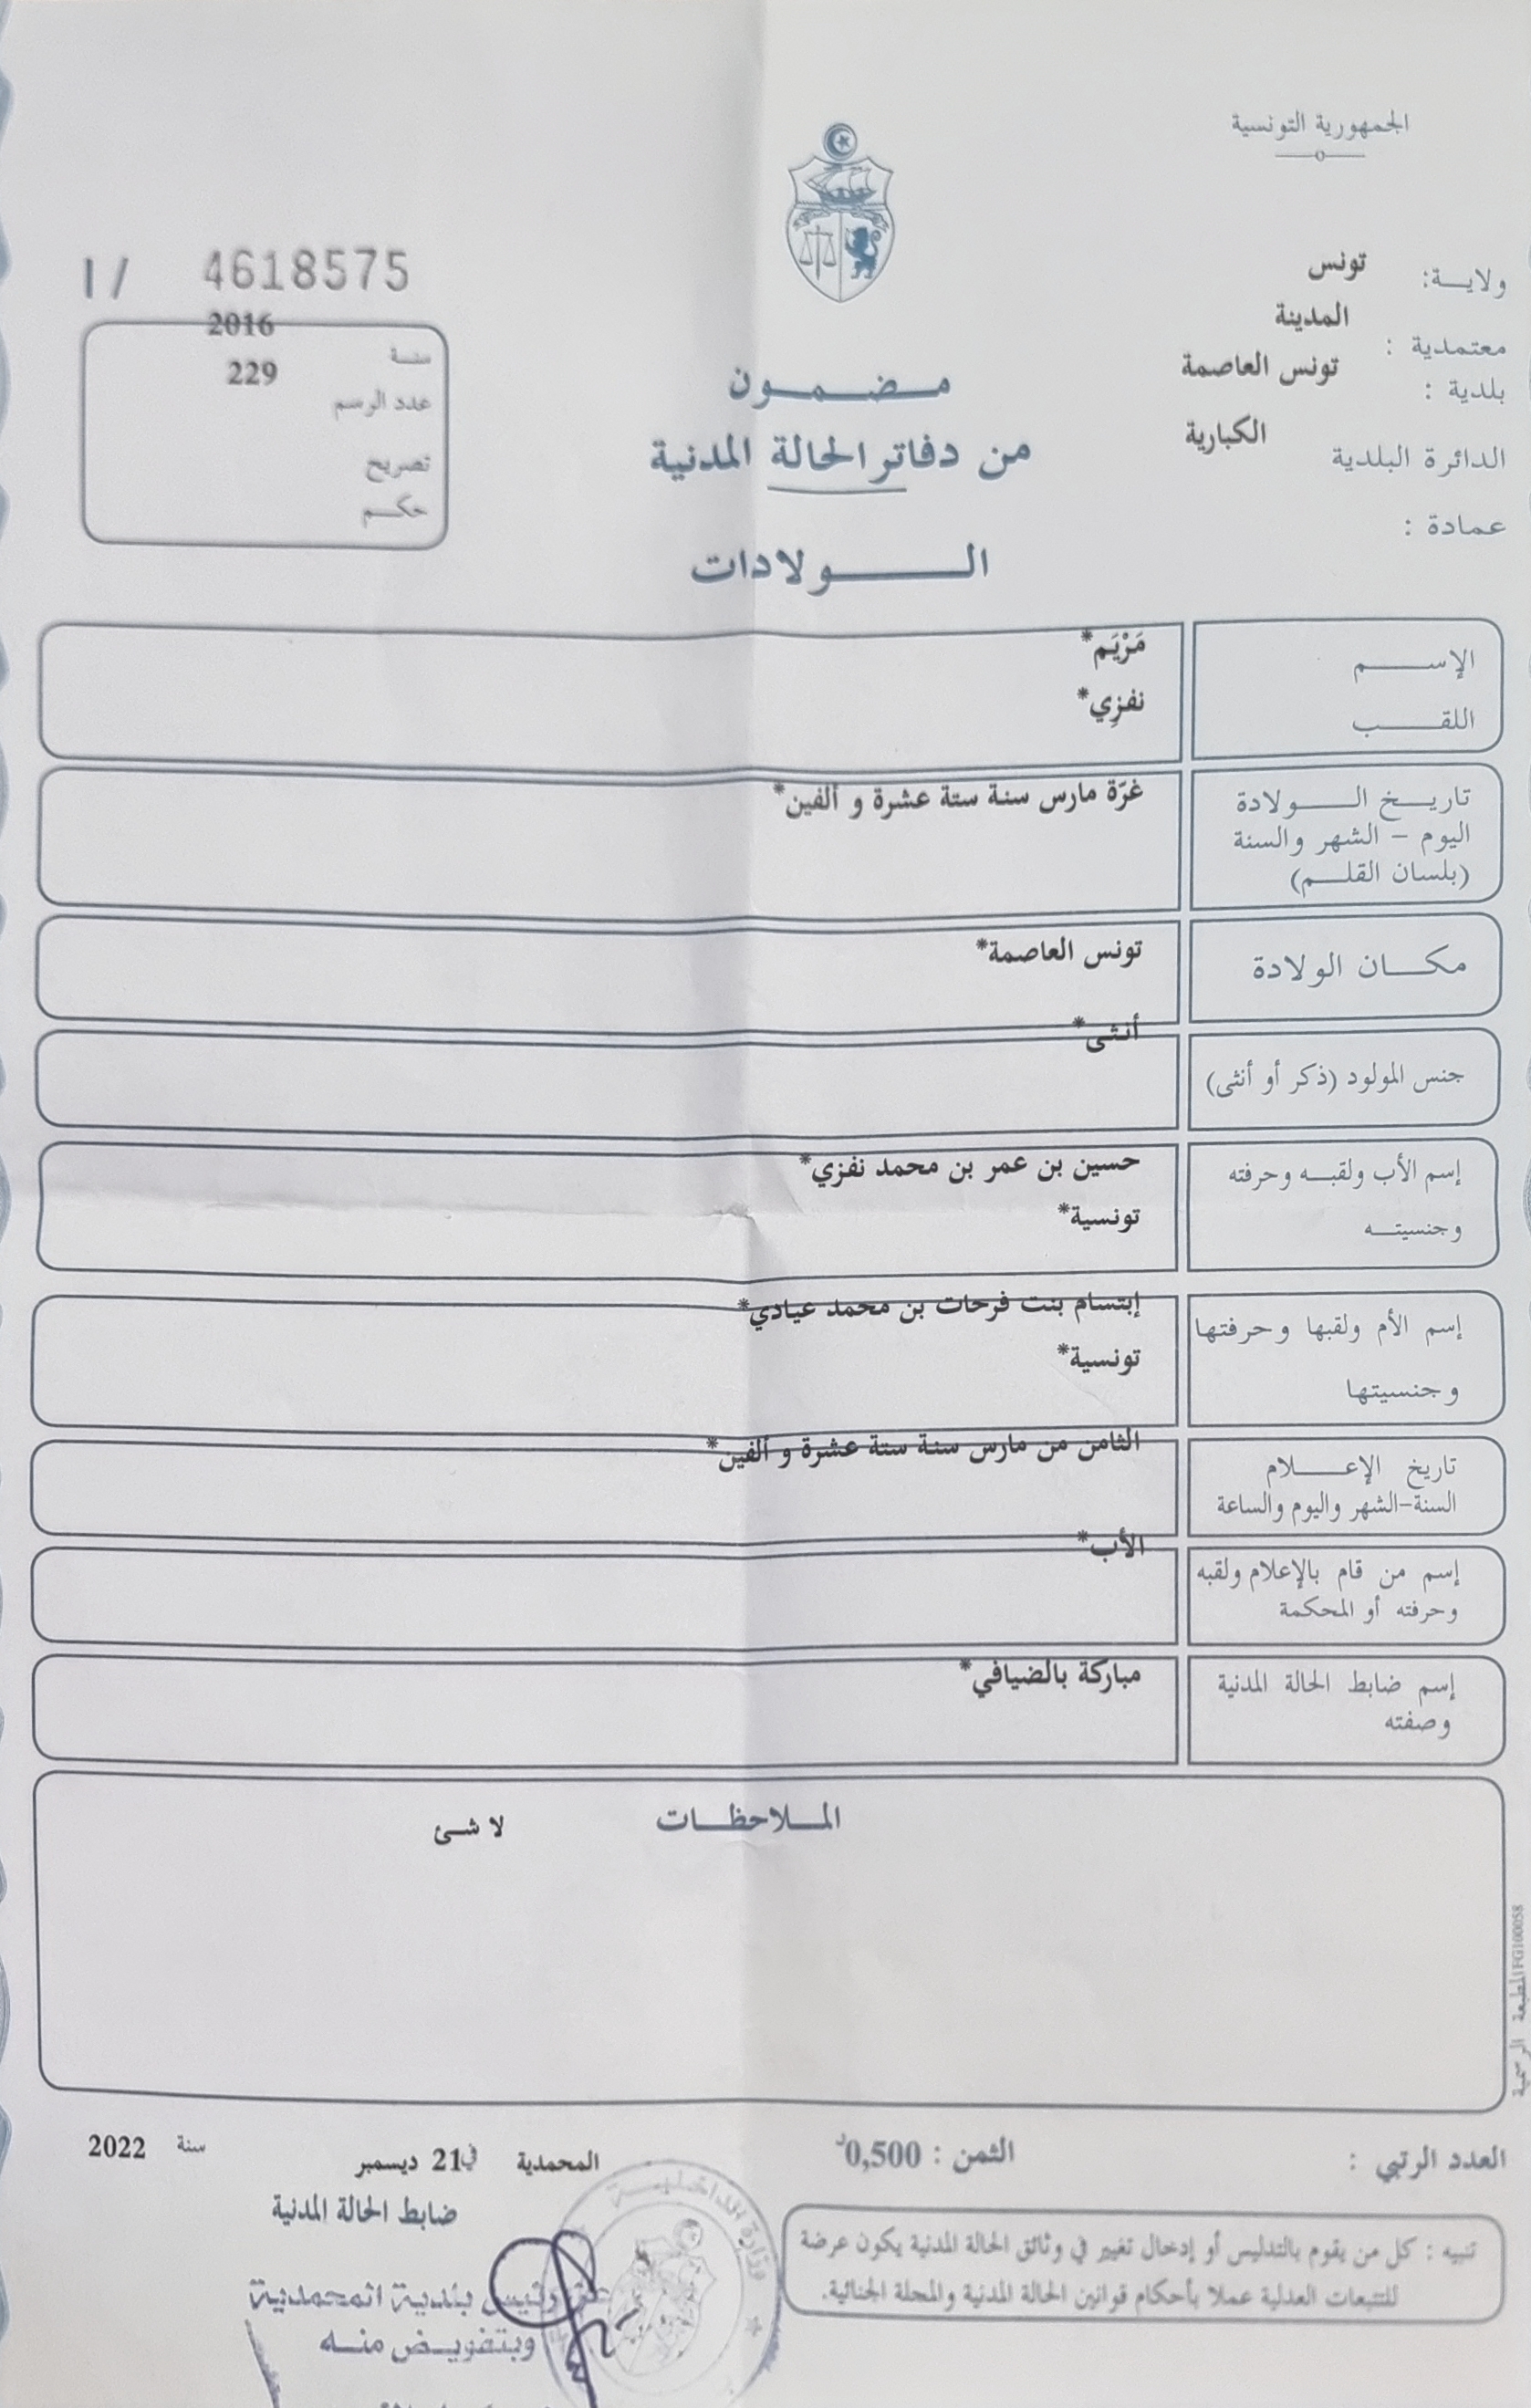 الجمهورية التونسية
ولايــة: تونس
معتمدية : المدينة
بلدية : تونس العاصمة
الدائرة البلدية الكبارية
عمادة :
4618575 / I
2016
سنــة
229
عدد الرسم
تصريح
حكــم
مــضــمــون
من دفاتر الحالة المدنية
الـــــولادات
الإســـــم مَرْيَم*
اللقـــــب نفزِي*
تاريــخ الـــــولادة غرّة مارس سنة ستة عشرة و ألفين*
اليوم – الشهر والسنة
(بلسان القلــم)
مكــــان الولادة تونس العاصمة*
جنس المولود (ذكر أو أنثى) أنثى*
إسم الأب ولقبــه وحرفته حسين بن عمر بن محمد نفزي*
وجنسيتــه تونسية*
إسم الأم ولقبها وحرفتها إبتسام بنت فرحات بن محمد عيادي*
وجنسيتها تونسية*
تاريخ الإعـــــلام الثامن من مارس سنة ستة عشرة و ألفين*
السنة-الشهر واليوم والساعة
إسم من قام بالإعلام ولقبه الأب*
وحرفته أو المحكمة
إسم ضابط الحالة المدنية مباركة بالضيافي*
وصفته
المــلاحظــات
لا شئ
المطبعة الرسمية FG100058
العدد الرتبي :
الثمن : 0,500د
المحمدية في 21 ديسمبر سنة 2022
ضابط الحالة المدنية
تنبيه : كل من يقوم بالتدليس أو إدخال تغيير في وثائق الحالة المدنية يكون عرضة
للتتبعات العدلية عملا بأحكام قوانين الحالة المدنية والمجلة الجنائية.
وزارة الداخليــة
عن رئيس بلدية المحمدية
وبتفويــض منــه